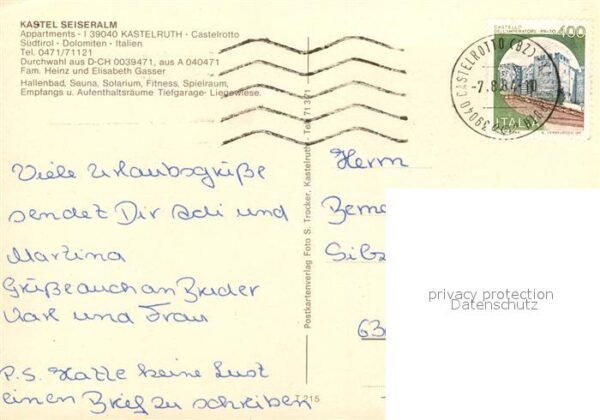 KASTEL SEISERALM
Appartments - I 39040 KASTELRUTH - Castelrotto
Südtirol - Dolomiten - Italien
Tel. 0471/71121
Durchwahl aus D-CH 0039471, aus A 040471
Fam. Heinz und Elisabeth Gasser
Hallenbad, Seuna, Solarium, Fitness, Spielraum,
Empfangs u. Aufenthaltsräume Tiefgarage- Liegewiese.
CASTELLO
DELL'IMPERATORE - PRATO
400
ITALIA
39040 CASTELROTTO (BZ)
-7.8.84
Viele Urlaubsgrüße
sendet Dir Adi und
Martina
Grüße auch an Bruder
Karl und Frau
P.S. Hatte keine Lust
einen Brief zu schreiben
Postkartenverlag Foto S. Trocker, Kastelruth - Tel. 71371
T 215
Herrn
privacy protection
Datenschutz